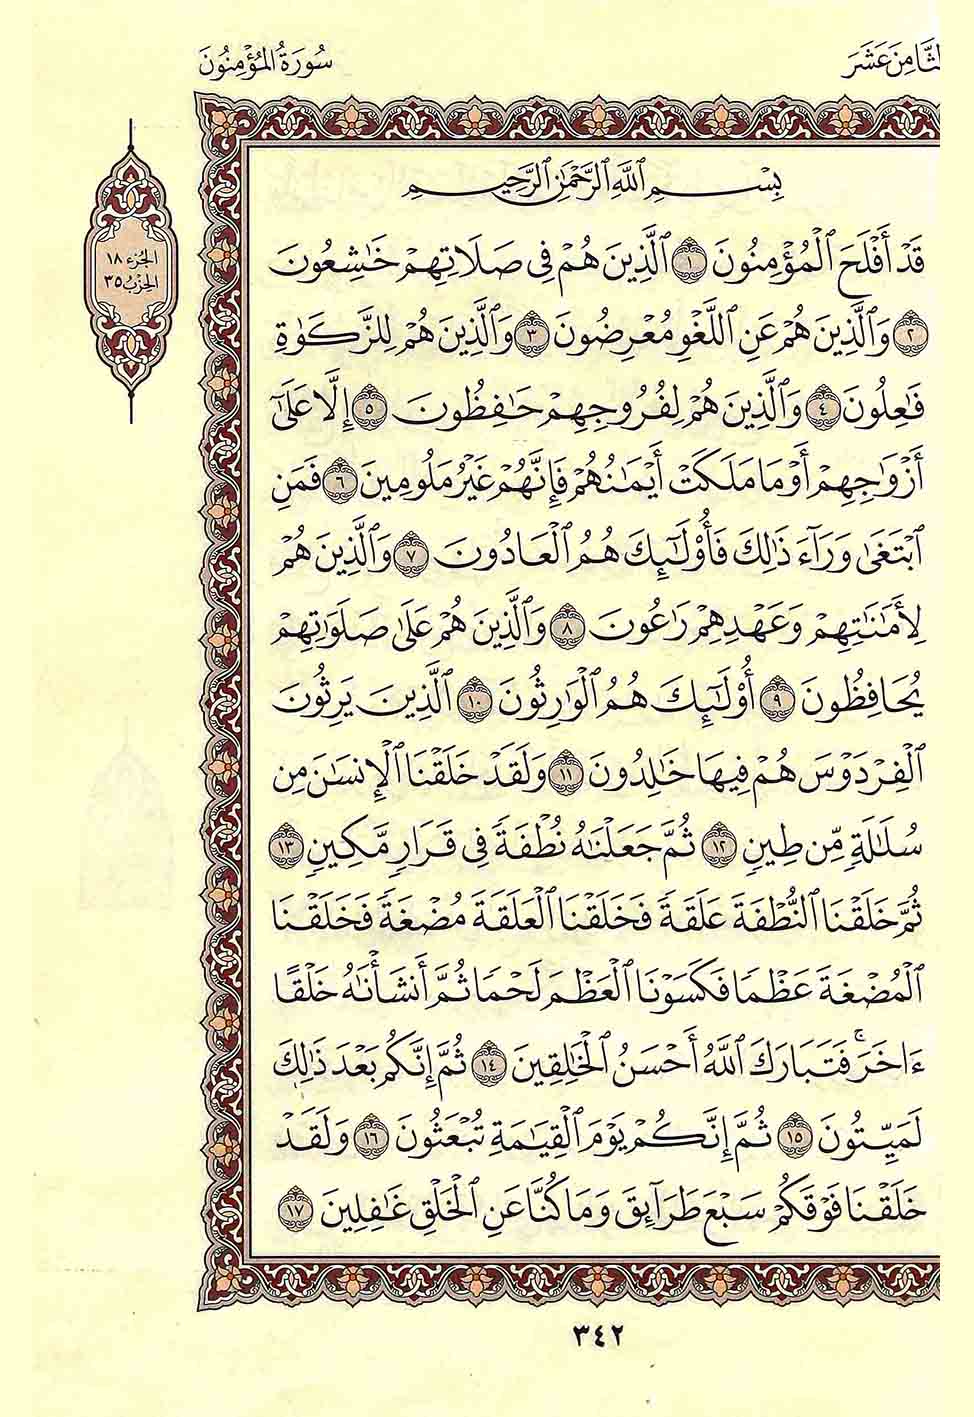 لثَّامِنَ عَشَرَ
سُورَةُ الْمُؤْمِنُونَ
الجُزء ١٨
الحِزبُ ٣٥
بِسْمِ ٱللَّهِ ٱلرَّحْمَٰنِ ٱلرَّحِيمِ
قَدْ أَفْلَحَ ٱلْمُؤْمِنُونَ ١ ٱلَّذِينَ هُمْ فِى صَلَاتِهِمْ خَٰشِعُونَ
٢ وَٱلَّذِينَ هُمْ عَنِ ٱللَّغْوِ مُعْرِضُونَ ٣ وَٱلَّذِينَ هُمْ لِلزَّكَوٰةِ
فَٰعِلُونَ ٤ وَٱلَّذِينَ هُمْ لِفُرُوجِهِمْ حَٰفِظُونَ ٥ إِلَّا عَلَىٰٓ
أَزْوَٰجِهِمْ أَوْ مَا مَلَكَتْ أَيْمَٰنُهُمْ فَإِنَّهُمْ غَيْرُ مَلُومِينَ ٦ فَمَنِ
ٱبْتَغَىٰ وَرَآءَ ذَٰلِكَ فَأُوْلَٰٓئِكَ هُمُ ٱلْعَادُونَ ٧ وَٱلَّذِينَ هُمْ
لِأَمَٰنَٰتِهِمْ وَعَهْدِهِمْ رَٰعُونَ ٨ وَٱلَّذِينَ هُمْ عَلَىٰ صَلَوَٰتِهِمْ
يُحَافِظُونَ ٩ أُوْلَٰٓئِكَ هُمُ ٱلْوَٰرِثُونَ ١٠ ٱلَّذِينَ يَرِثُونَ
ٱلْفِرْدَوْسَ هُمْ فِيهَا خَٰلِدُونَ ١١ وَلَقَدْ خَلَقْنَا ٱلْإِنسَٰنَ مِن
سُلَٰلَةٍ مِّن طِينٍ ١٢ ثُمَّ جَعَلْنَٰهُ نُطْفَةً فِى قَرَارٍ مَّكِينٍ ١٣
ثُمَّ خَلَقْنَا ٱلنُّطْفَةَ عَلَقَةً فَخَلَقْنَا ٱلْعَلَقَةَ مُضْغَةً فَخَلَقْنَا
ٱلْمُضْغَةَ عَظْمًا فَكَسَوْنَا ٱلْعَظْمَ لَحْمًا ثُمَّ أَنشَأْنَٰهُ خَلْقًا
ءَاخَرَۚ فَتَبَارَكَ ٱللَّهُ أَحْسَنُ ٱلْخَٰلِقِينَ ١٤ ثُمَّ إِنَّكُم بَعْدَ ذَٰلِكَ
لَمَيِّتُونَ ١٥ ثُمَّ إِنَّكُمْ يَوْمَ ٱلْقِيَٰمَةِ تُبْعَثُونَ ١٦ وَلَقَدْ
خَلَقْنَا فَوْقَكُمْ سَبْعَ طَرَآئِقَ وَمَا كُنَّا عَنِ ٱلْخَلْقِ غَٰفِلِينَ ١٧
٣٤٢